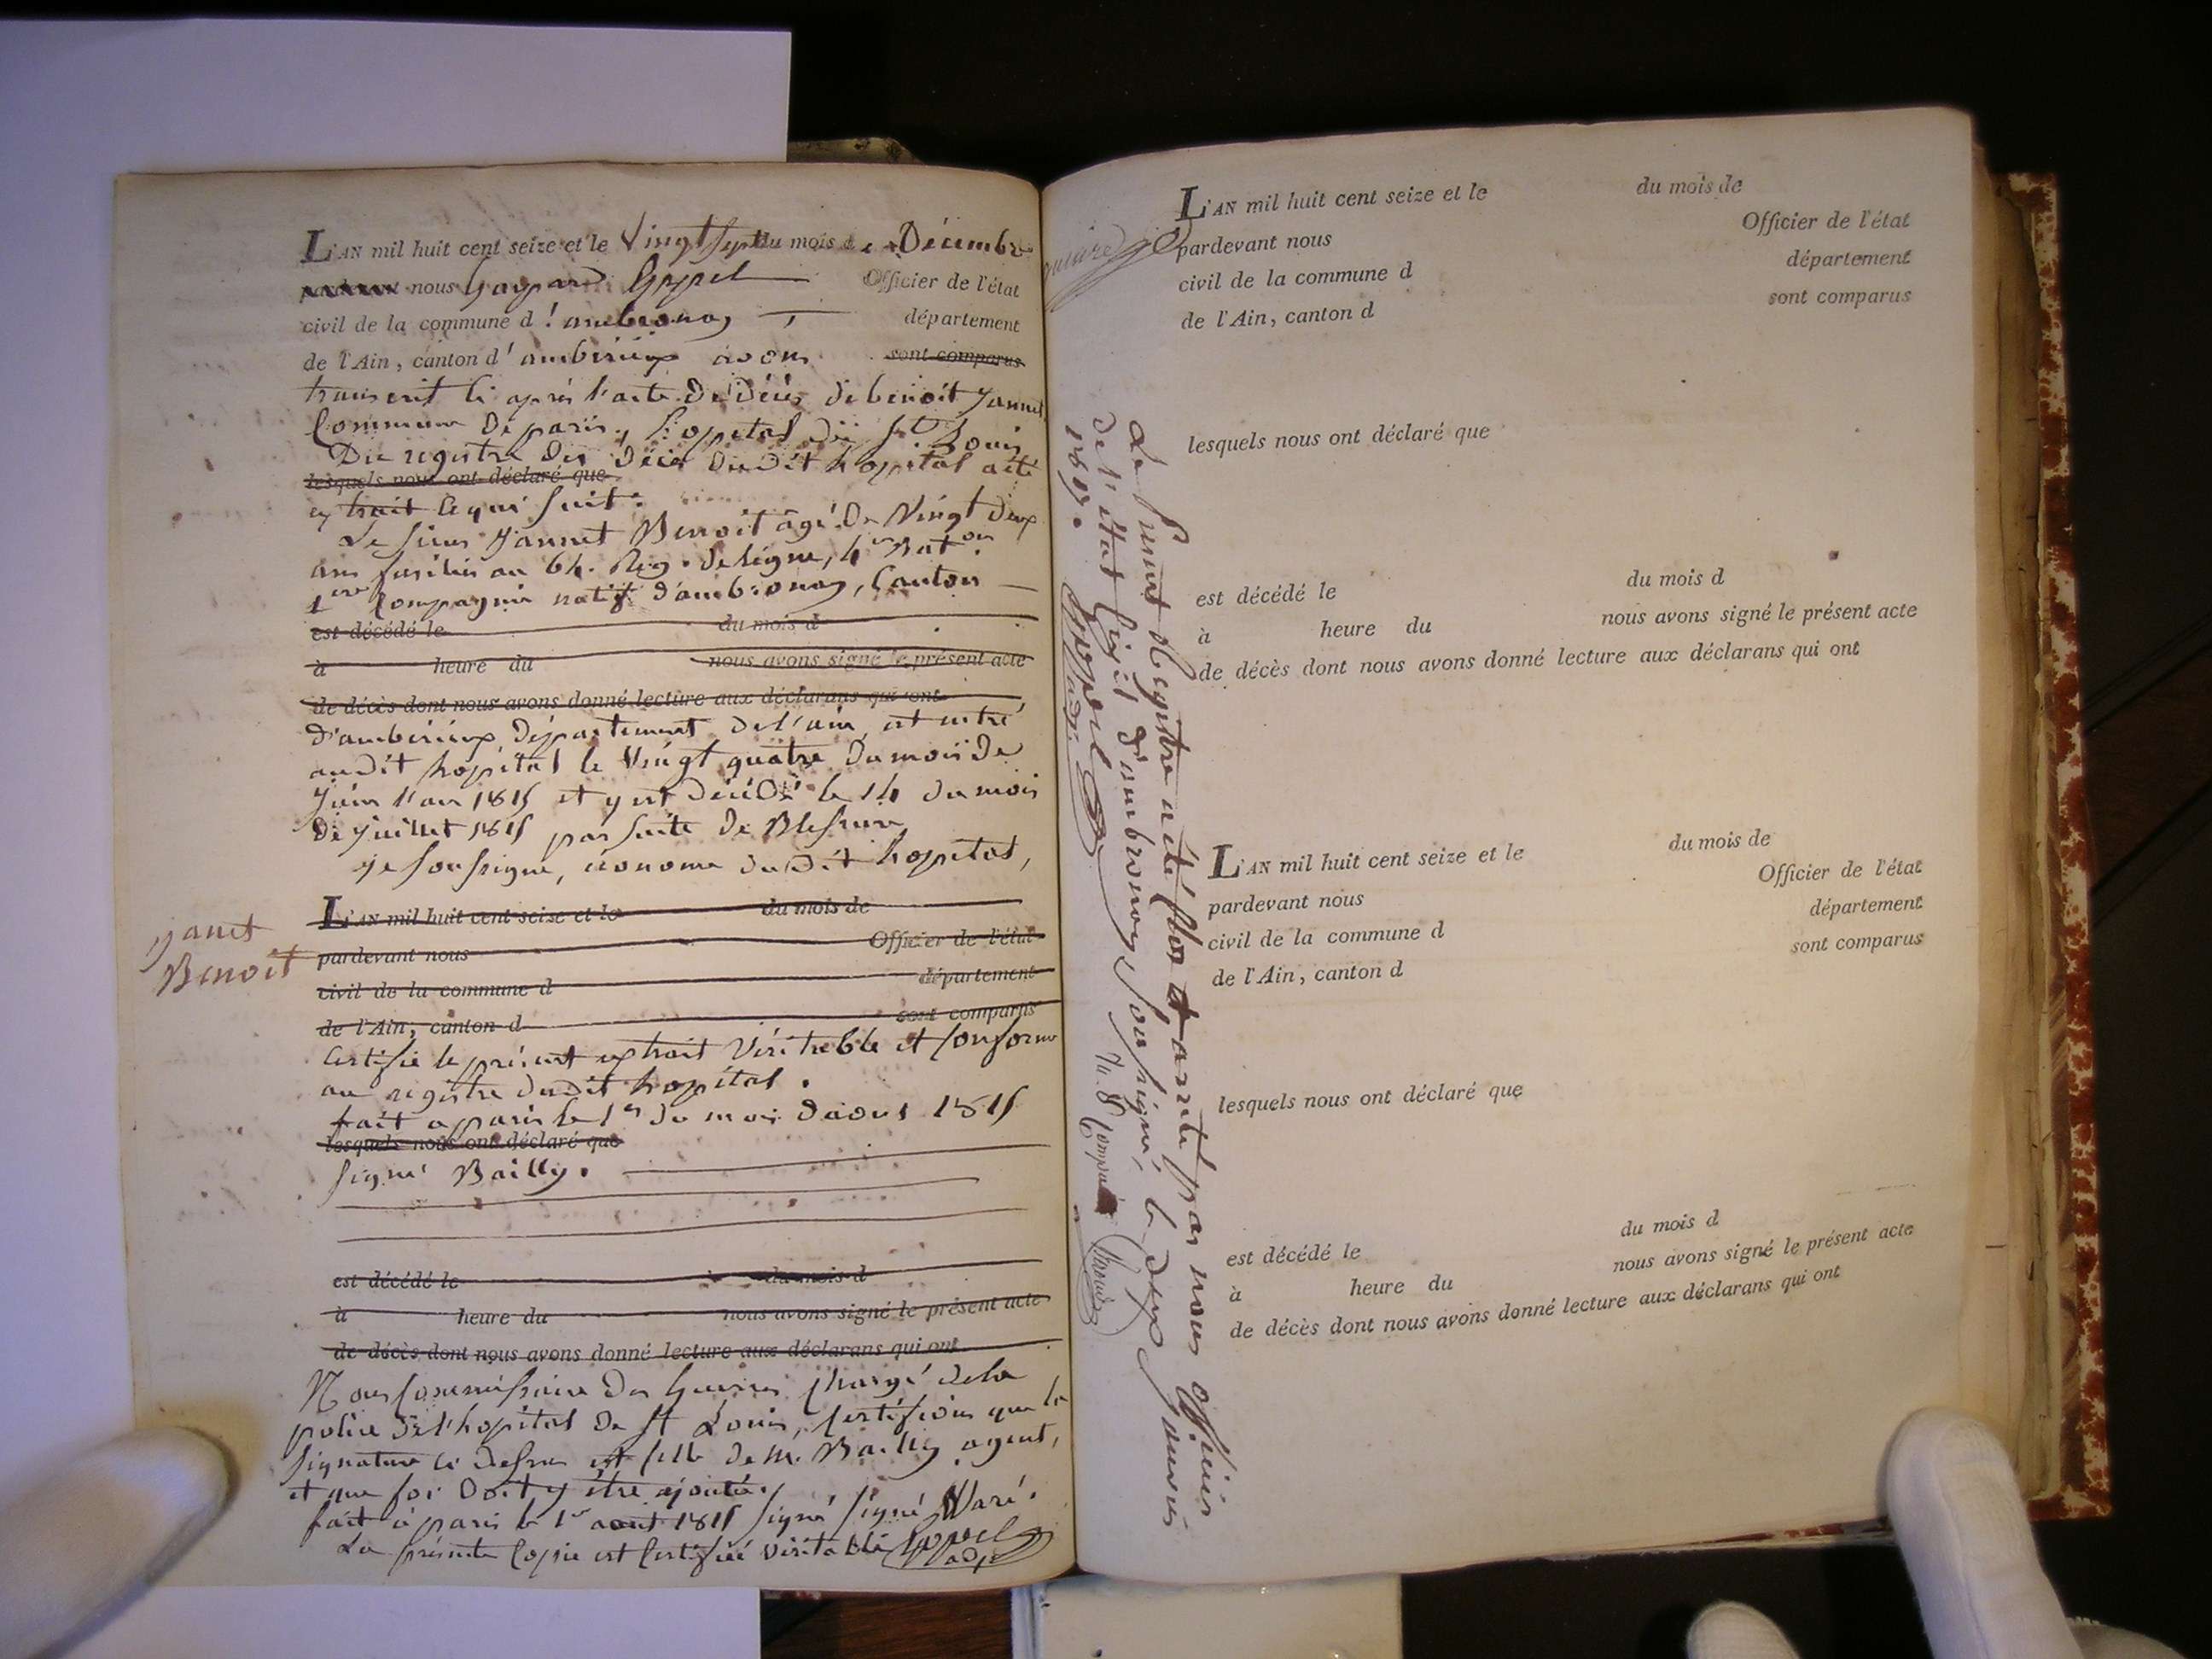 L'AN mil huit cent seize et le Vingt sept du mois de Décembre
pardevant nous Gaspard Goppel Officier de l'état
civil de la commune d'ambronay département
de l'Ain, canton d'ambérieux avons sont comparus
transcrit ci après l'acte De Décès de benoit Jannet
Commune De paris, hopital de St Louis
Du registre des décès dudit hopital a été
lesquels nous ont déclaré que
extrait ce qui suit.
Le sieur Jannet Benoit âgé De Vingt deux
ans fusilier au 64. Reg. de ligne, 4e Baton.
1ere Compagnie natif d'ambronay, Canton
est décédé le du mois d
à heure du nous avons signé le présent acte
de décès dont nous avons donné lecture aux déclarans qui ont
D'ambérieux Département de l'ain, est entré
audit hopital le Vingt quatre Du mois De
Juin l'an 1815 et y est Décédé le 14 du mois
De Juillet 1815 par suite De Blessure
je soussigné, économe dudit hopital,
Janet
Benoit
L'AN mil huit cent seize et le du mois de
pardevant nous Officier de l'état
civil de la commune d département
de l'Ain, canton d sont comparus
Certifie le présent extrait Véritable et Conforme
au registre dudit hopital.
fait a paris le 1er du mois d'aout 1815
lesquels nous ont déclaré que
signé Bailly.
est décédé le du mois d
à heure du nous avons signé le présent acte
de décès dont nous avons donné lecture aux déclarans qui ont
Nous Commissaire Des Guerres chargé de la
police De l'hopital De St Louis, Certifions que la
signature ci dessus est celle de M. Bailly agent,
et que foi Doit y être ajoutée.
fait à paris le 1er aout 1815 signé signé Varé.
La présente Copie est Certifiée Véritable Goppel adj.
Le présent Registre a été clos et arreté par nous officier
de l'état Civil d'ambronay soussigné, le deux Janvier
1817. Goppel adj.
L'AN mil huit cent seize et le du mois de
pardevant nous Officier de l'état
civil de la commune d département
de l'Ain, canton d sont comparus
lesquels nous ont déclaré que
est décédé le du mois d
à heure du nous avons signé le présent acte
de décès dont nous avons donné lecture aux déclarans qui ont
L'AN mil huit cent seize et le du mois de
pardevant nous Officier de l'état
civil de la commune d département
de l'Ain, canton d sont comparus
lesquels nous ont déclaré que
est décédé le du mois d
à heure du nous avons signé le présent acte
de décès dont nous avons donné lecture aux déclarans qui ont